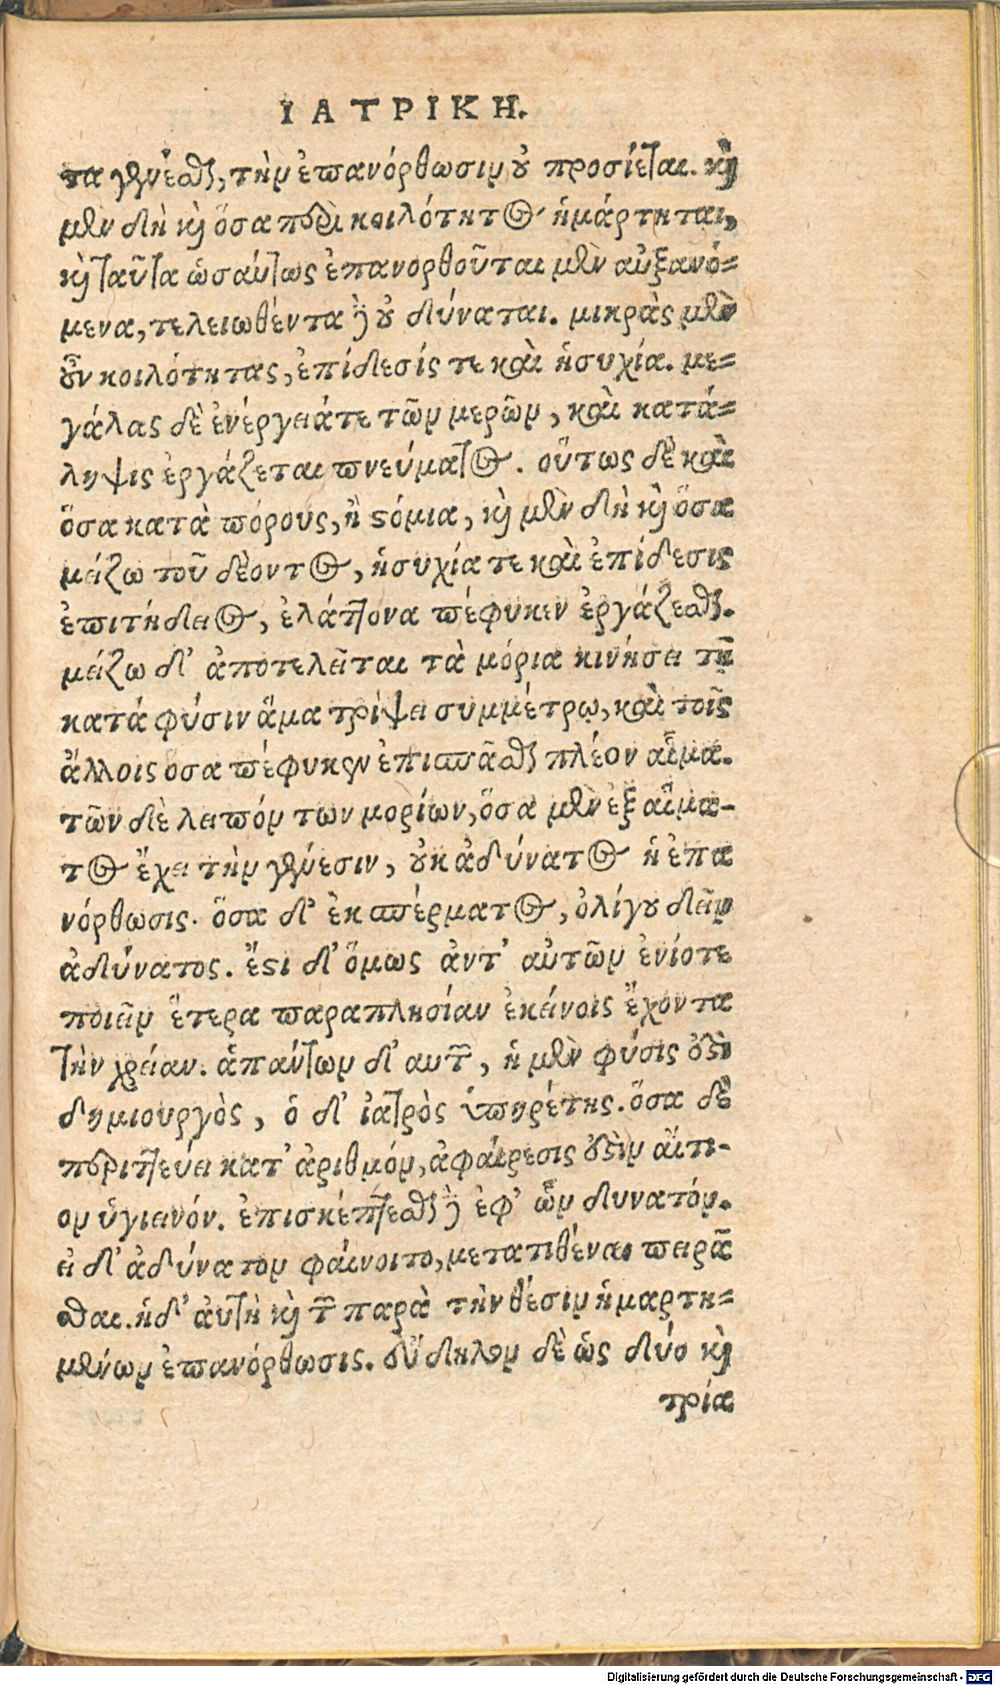 ΙΑΤΡΙΚΗ.
τα γενέσθαι, τὴν ἐπανόρθωσιν οὐ προσίεται. καὶ
μὲν δὴ καὶ ὅσα περὶ κοιλότητος ἡμάρτηται,
καὶ ταῦτα ὡσαύτως ἐπανορθοῦται μὲν αὐξανό=
μενα, τελειωθέντα δὲ οὐ δύναται. μικρὰς μὲν
οὖν κοιλότητας, ἐπίδεσίς τε καὶ ἡσυχία. με=
γάλας δὲ ἐνέργειάτε τῶν μερῶν, καὶ κατά=
ληψις ἐργάζεται πνεύματος. οὕτως δὲ καὶ
ὅσα κατὰ πόρους, ἢ στόμια, καὶ μὲν δὴ καὶ ὅσα
μείζω τοῦ δέοντος, ἡσυχία τε καὶ ἐπίδεσις
ἐπιτήδειος, ἐλάττονα πέφυκεν ἐργάζεσθαι.
μείζω δ' ἀποτελεῖται τὰ μόρια κινήσει τῇ
κατά φύσιν ἅμα τρίψει συμμέτρῳ, καὶ τοῖς
ἄλλοις ὅσα πέφυκεν ἐπισπᾶσθαι πλέον αἷμα.
τῶν δὲ λειπόν των μορίων, ὅσα μὲν ἐξ αἵμα-
τος ἔχει τὴν γένεσιν, οὐκ ἀδύνατος ἡ ἐπα
νόρθωσις. ὅσα δ' ἐκ σπέρματος, ὀλίγου δεῖν
ἀδύνατος. ἔστι δ' ὅμως ἀντ' αὐτῶν ἐνίοτε
ποιεῖν ἕτερα παραπλησίαν ἐκείνοις ἔχοντα
τὴν χρείαν. ἁπάντων δ' αυτῶν, ἡ μὲν φύσις ἐστὶ
δημιουργὸς, ὁ δ' ἰατρὸς ὑπηρέτης. ὅσα δὲ
περιττεύει κατ' ἀριθμόν, ἀφαίρεσις ἐστὶν αἴτι-
ον ὑγιεινόν. ἐπισκέπτεσθαι δὲ ἐφ' ὧν δυνατόν.
εἰ δ' ἀδύνατον φαίνοιτο, μετατιθέναι πειρᾶ
σθαι. ἡδ' ἀυτὴ καὶ τῶν παρὰ τὴν θέσιν ἡμαρτη=
μένων ἐπανόρθωσις. εὔδηλον δὲ ὡς δύο καὶ
τρία
Digitalisierung gefördert durch die Deutsche Forschungsgemeinschaft - DFG